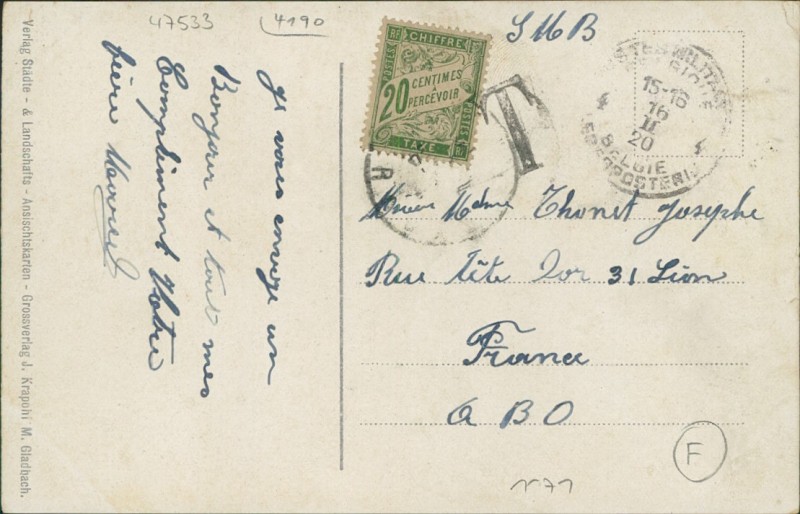 47533
4190
SMB
POSTES RF CHIFFRE
20 CENTIMES
A
PERCEVOIR
TAXE
POSTES
T
POSTES MILITAIRES
BELGIQUE
15-16
16
II
20
BELGIE
LEGERPOSTERIJ
R
Je vous envoye un
Bonjour et tout mes
Compliment Votre
frère Marcel
Mme Thonet Josephe
Rue Tête Dor 31 Lion
France
A B O
F
1571
Verlag Städte - & Landschafts - Ansichtskarten - Grossverlag J. Krapohl M. Gladbach.